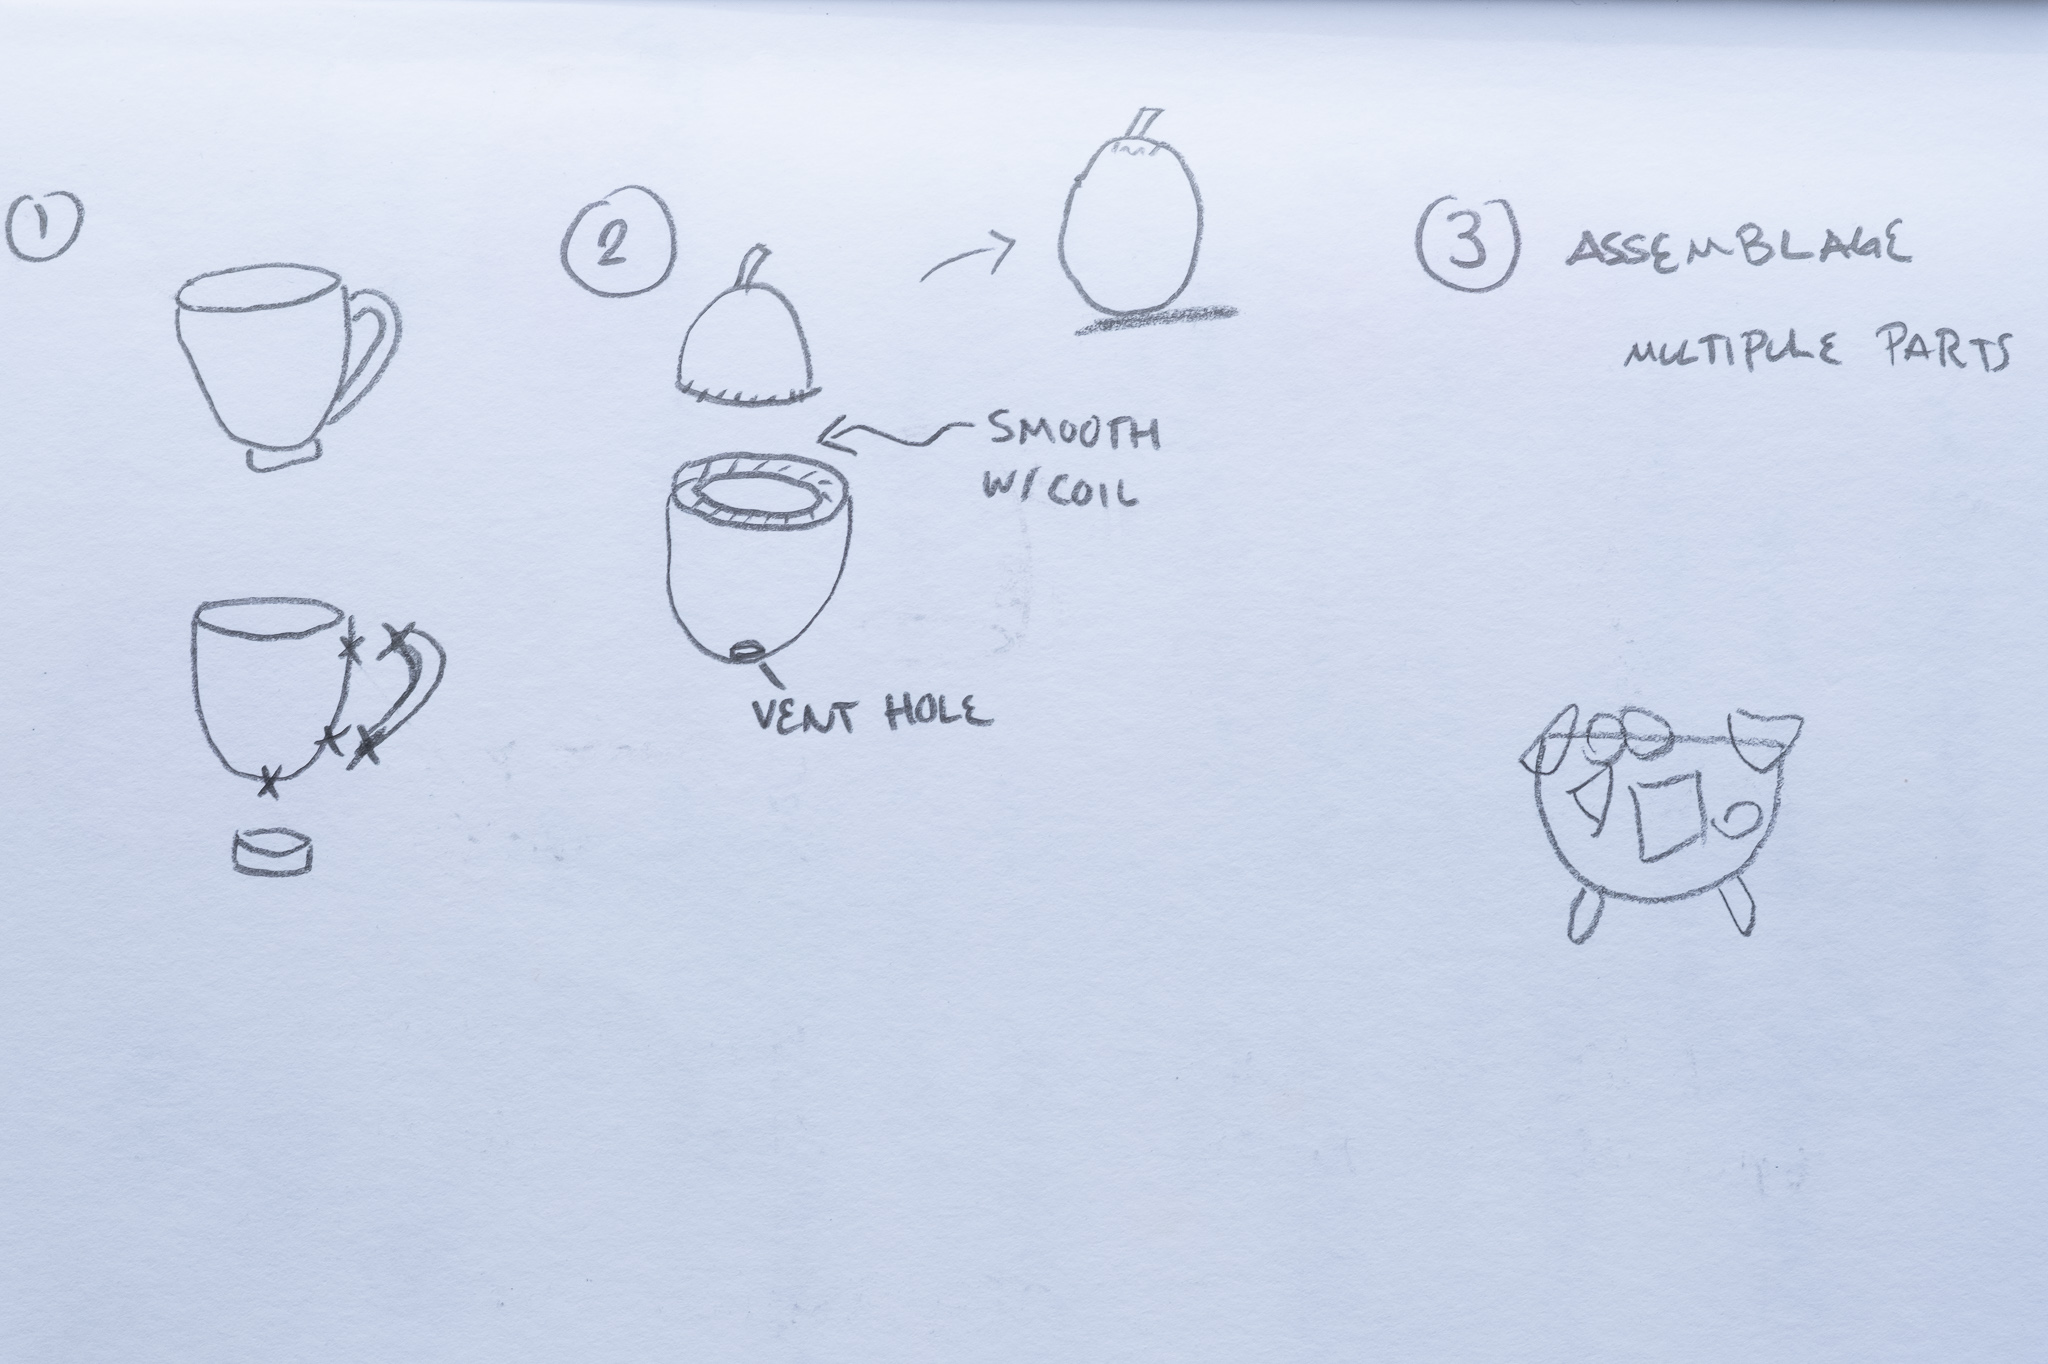 1
2
SMOOTH
W/COIL
VENT HOLE
3 ASSEMBLAGE
MULTIPLE PARTS